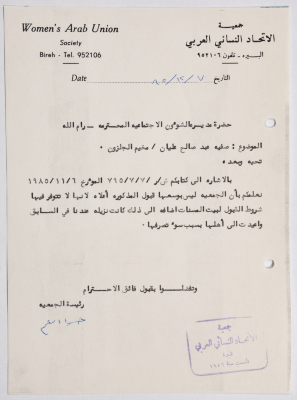 Women's Arab Union
Society
Bireh - Tel. 952106
جمعية
الاتحاد النسائي العربي
البيره - تلفون ٩٥٢١٠٦
Date
التاريخ
حضرة مديسرة الشؤون الاجتماعيه المحترمه - رام الله
الموضوع : صفيه عبد صالح عليان / مخيم الجلزون
تحيه وبعد ،
بالاشاره الى كتابكم ش ر /٧٦٥/٧/٧ المؤرخ ١٩٨٥/١١/٦
نعلمكم بأن الجمعيه ليس بوسعها قبول المذكوره أعلاه لانها لا تتوفر فيها
شروط القبول لبيت المسنات اضافه الى ذلك كانت نزيله عندنا في السابق
واعيدت الى أهلها بسبب سوء تصرفها .
وتفضلوا بقبول فائق الاحترام
رئيسة الجمعيه
جمعية
الاتحاد النسائي العربي
البيرة